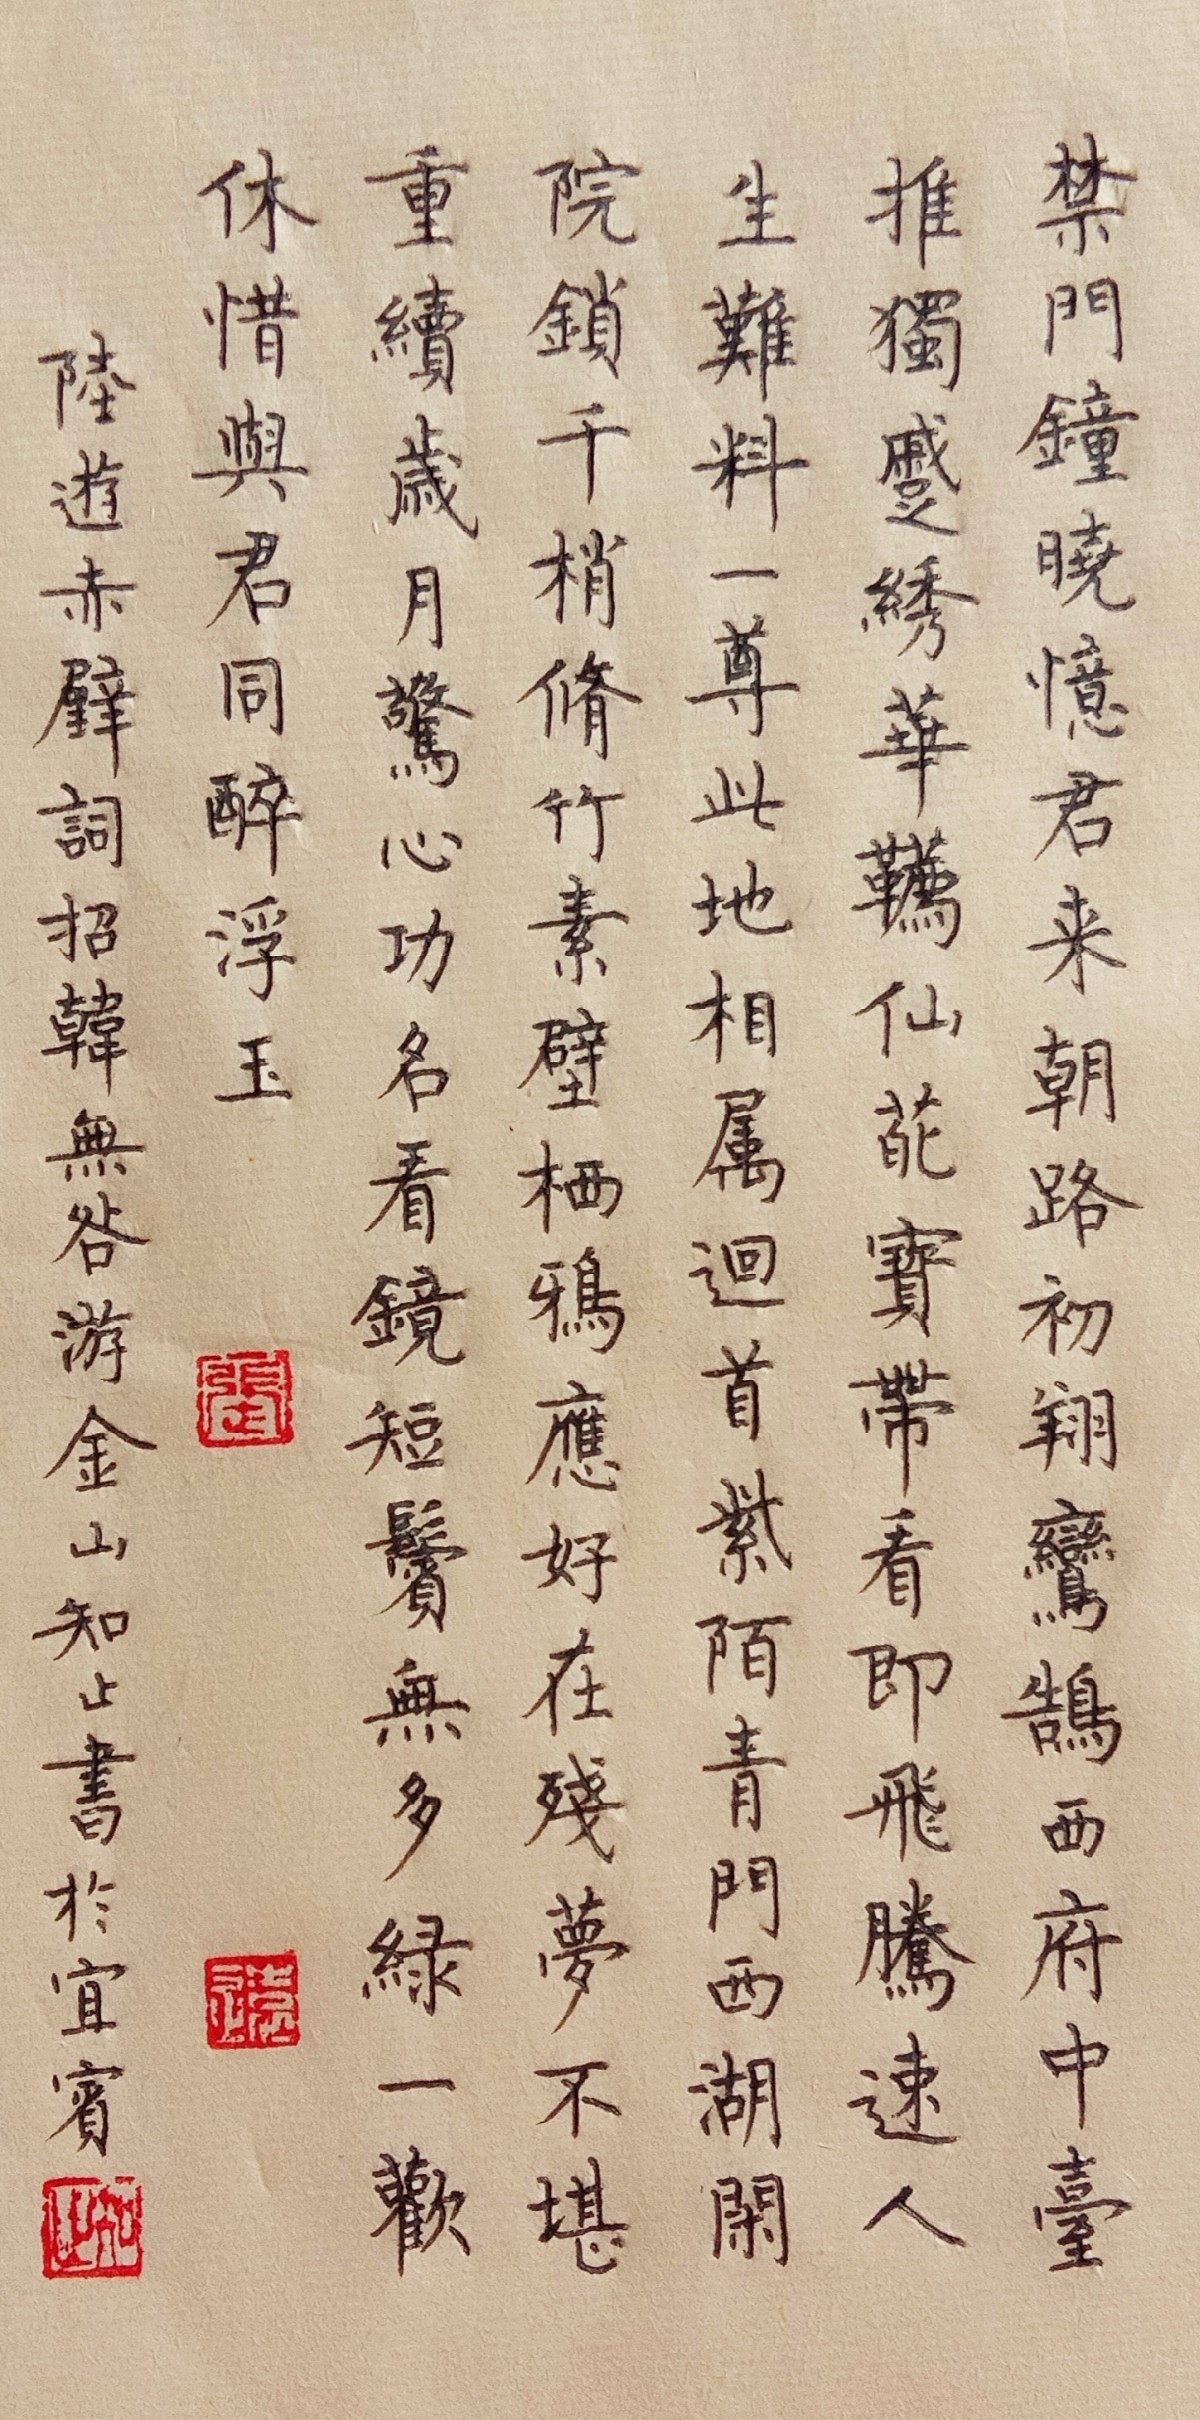 禁門鐘曉憶君来朝路初翔鸞鵠西府中臺
推獨躄綉華韉仙葩寶帶看即飛騰速人
生難料一尊此地相属迴首紫陌青門西湖閑
院鎖千梢脩竹素壁栖鴉應好在殘夢不堪
重續歲月驚心功名看鏡短鬢無多綠一歡
休惜與君同醉浮玉
陸遊赤壁詞招韓無咎游金山知止書於宜賓
知止